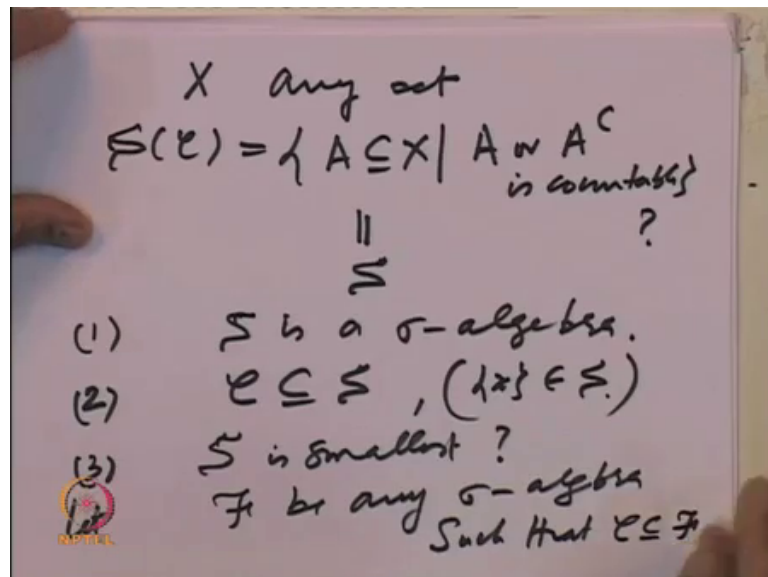 X any set
S(C) = { A ⊆ X | A or A^C
is countable}
?
||
S
(1) S is a σ-algebra.
(2) C ⊆ S, ({x} ∈ S.)
(3) S is smallest ?
Let F be any σ-algebra
Such that C ⊆ F
NPTEL